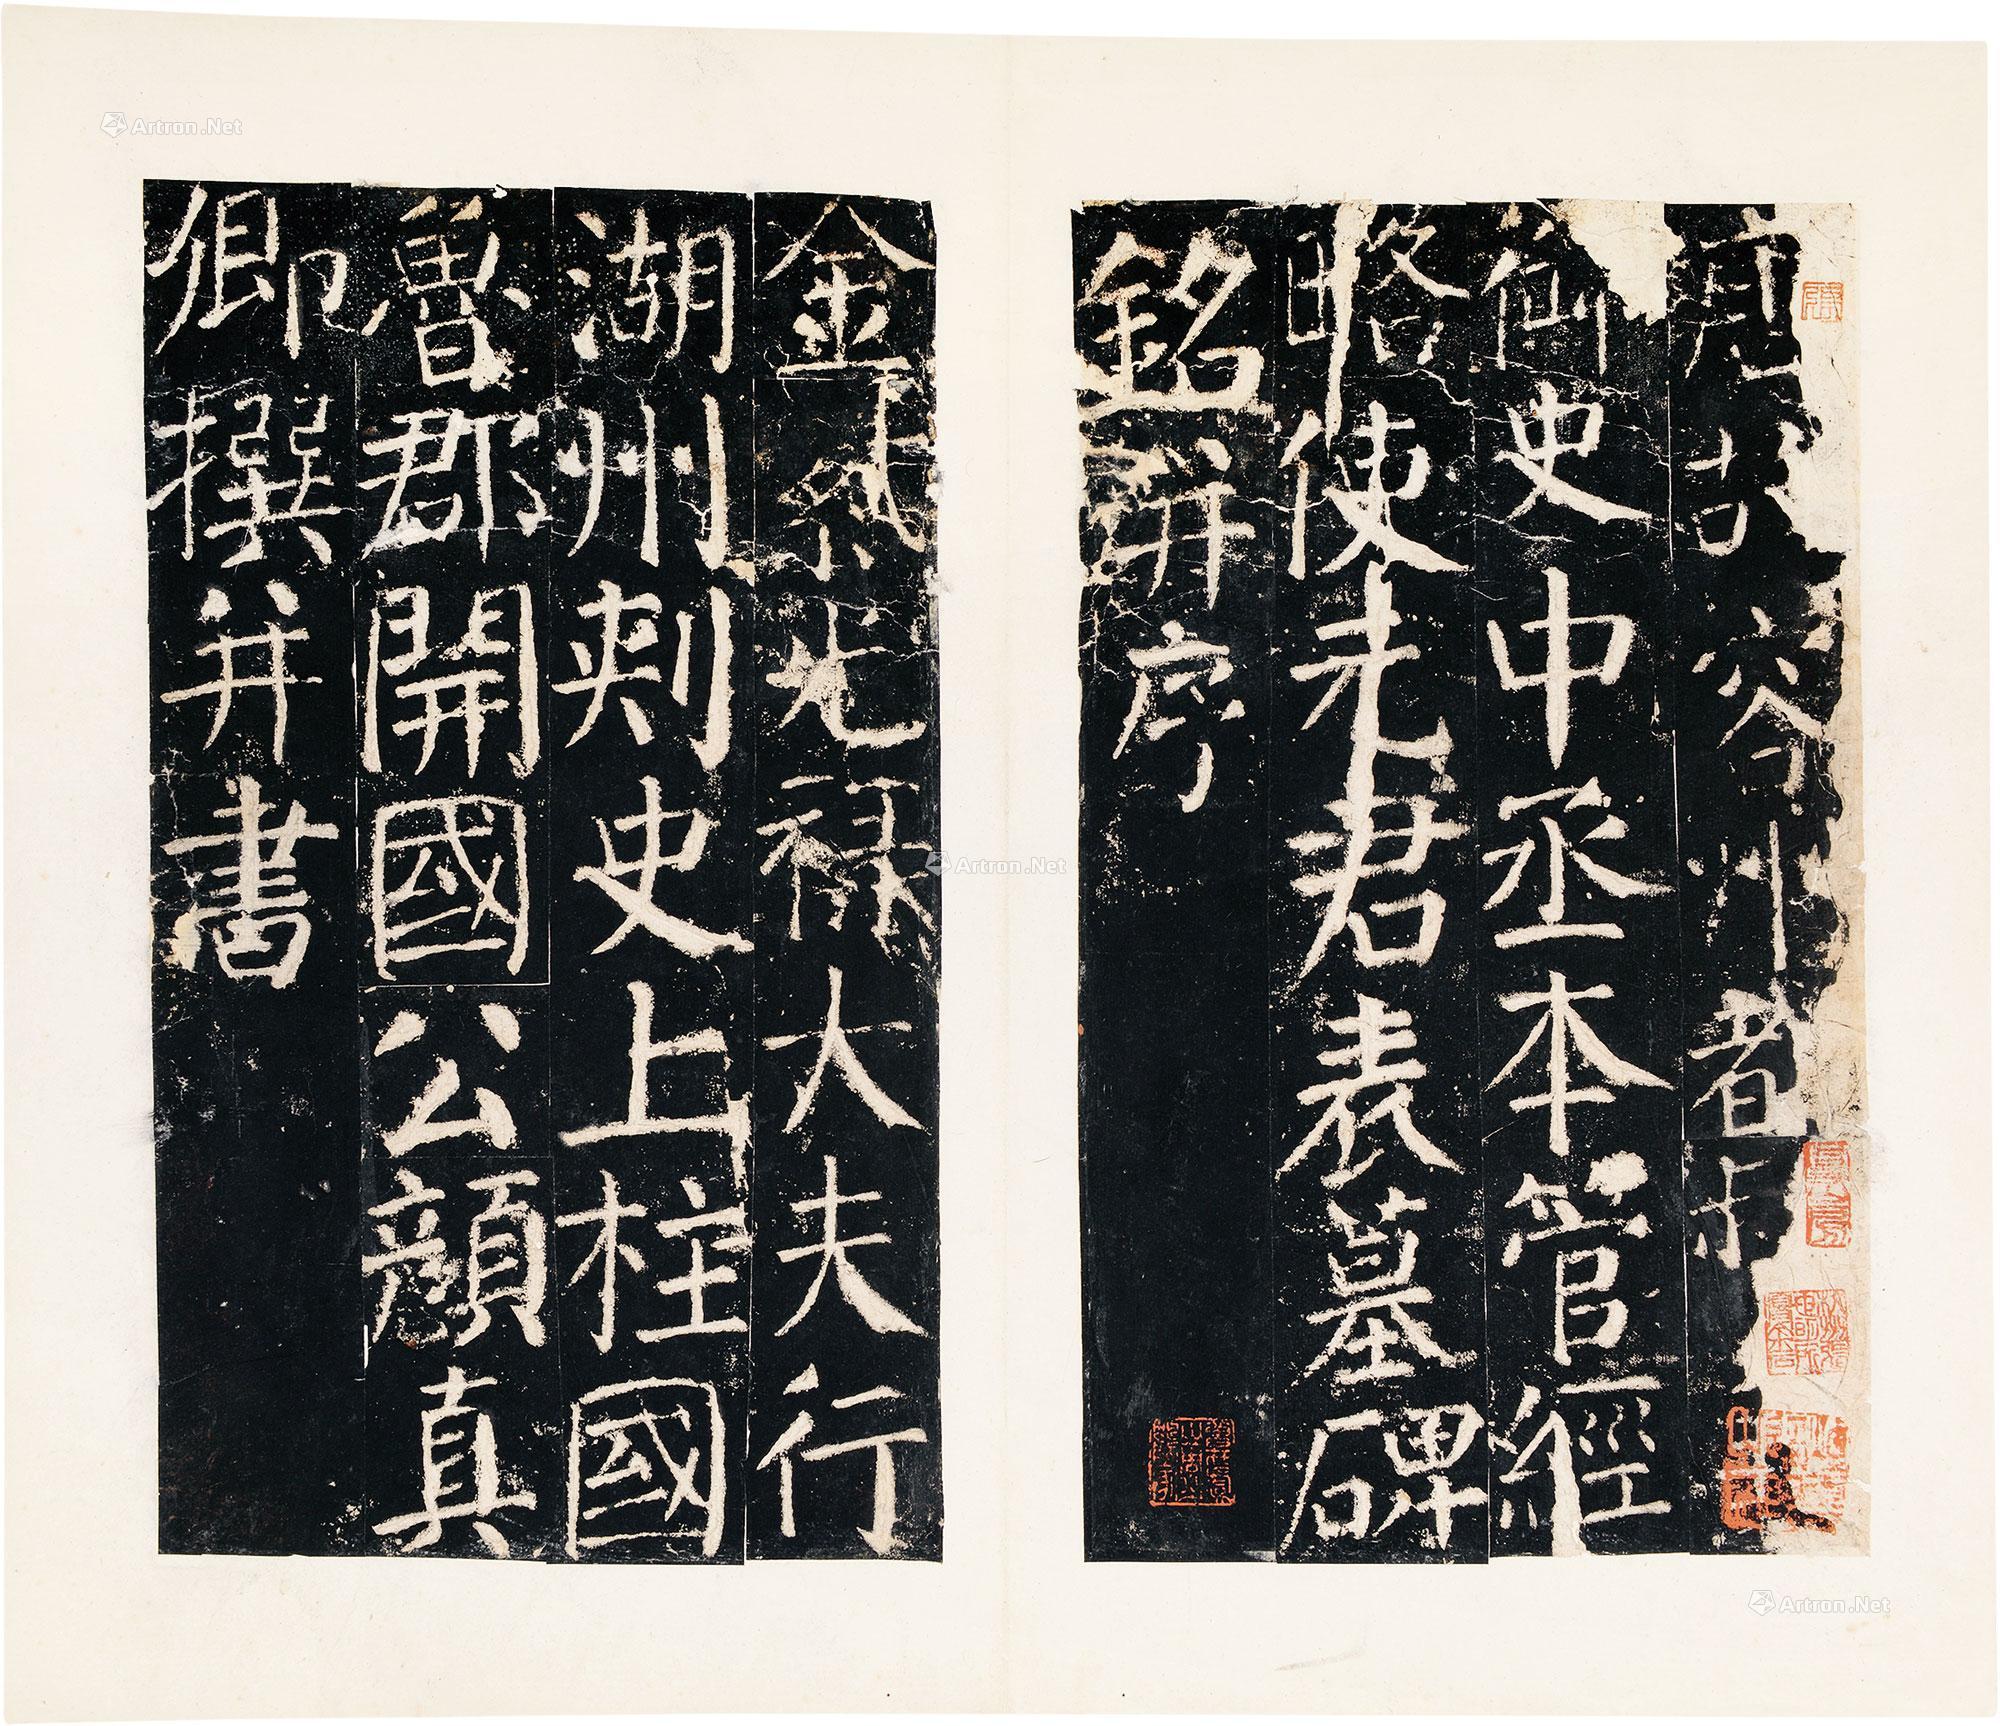 唐故容州都
御史中丞本管經
略使元君表墓碑
銘并序
金紫光祿大夫行
湖州刺史上柱國
魯郡開國公顏真
卿撰并書
Artron.Net
Artron.Net
Artron.Net